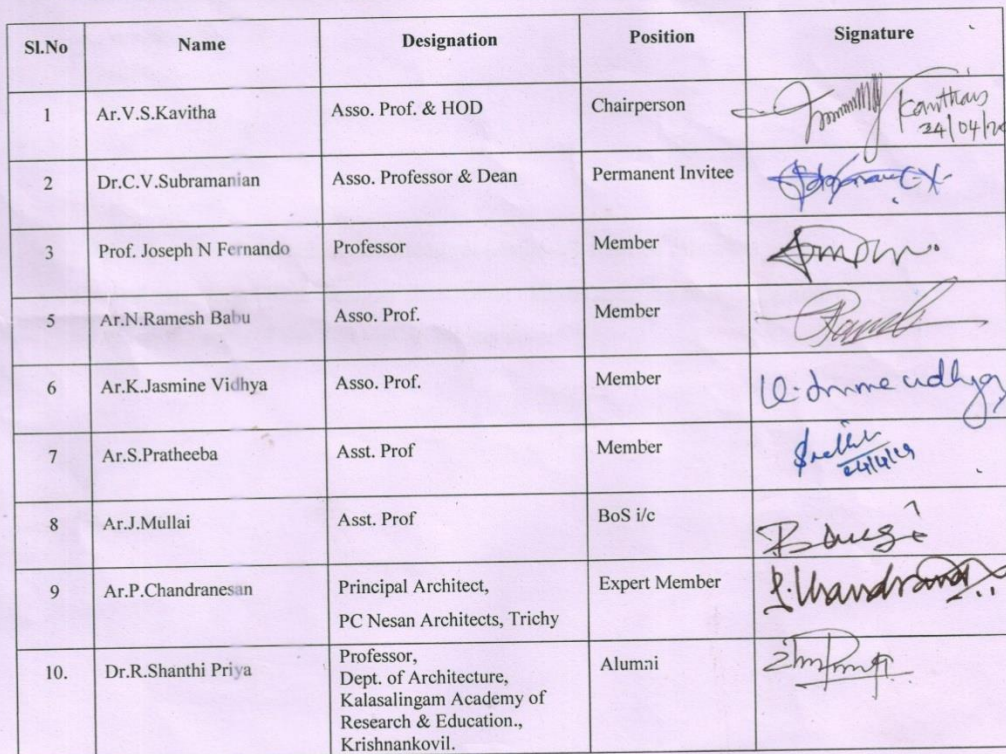 Sl.No Name Designation Position Signature
1 Ar.V.S.Kavitha Asso. Prof. & HOD Chairperson
24/04/20
2 Dr.C.V.Subramanian Asso. Professor & Dean Permanent Invitee
3 Prof. Joseph N Fernando Professor Member
5 Ar.N.Ramesh Babu Asso. Prof. Member
6 Ar.K.Jasmine Vidhya Asso. Prof. Member
7 Ar.S.Pratheeba Asst. Prof Member
24/4/19
8 Ar.J.Mullai Asst. Prof BoS i/c
9 Ar.P.Chandranesan Principal Architect, Expert Member
PC Nesan Architects, Trichy
10. Dr.R.Shanthi Priya Professor, Alumni
Dept. of Architecture,
Kalasalingam Academy of
Research & Education.,
Krishnankovil.